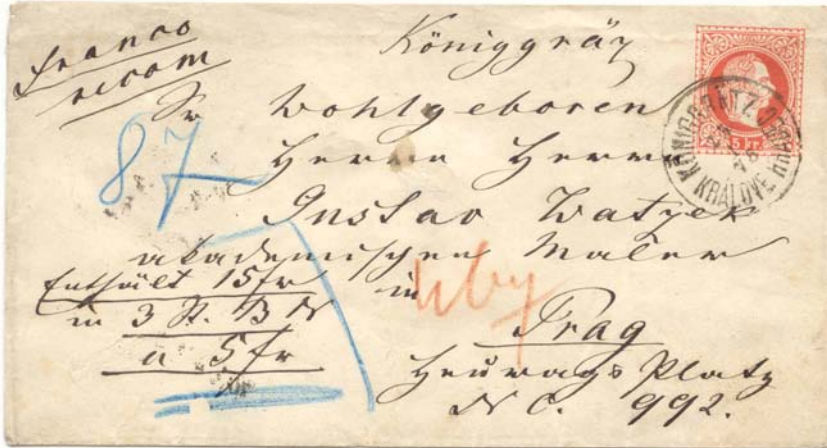 franco
recom
Königgräz
Sr Wohlgeboren
Herrn Herrn
Gustav Watzek
akademischen Maler
in
Prag
Heuwags Platz
N C. 992.
Enthält 15 fr
in 3 St. B N
a 5 fr
87
5 kr.
KÖNIGGRÄTZ
KRÁLOVÉ